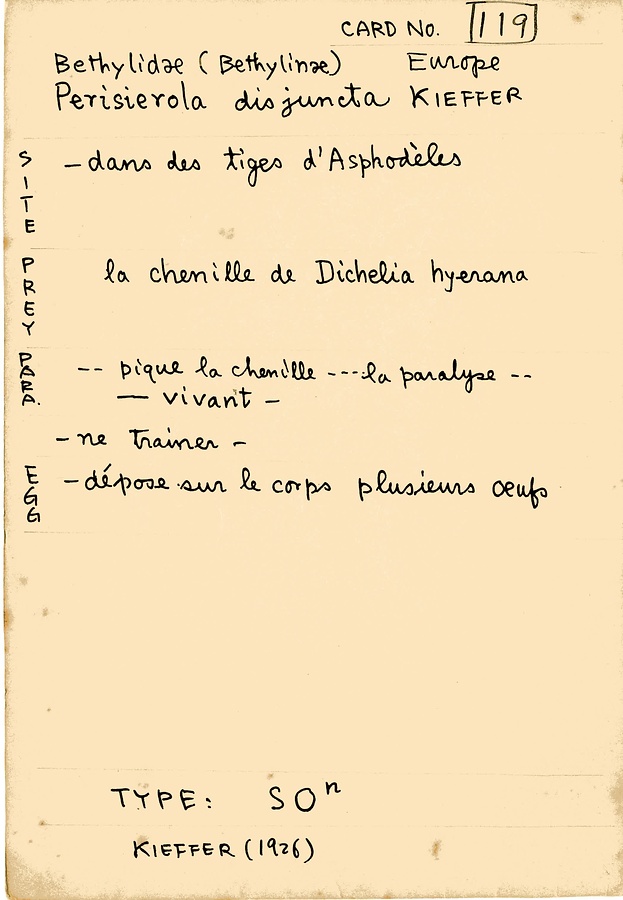 CARD No. 119
Bethylidae (Bethylinae) Europe
Perisierola disjuncta KIEFFER
SITE – dans des tiges d'Asphodèles
PREY la chenille de Dichelia hyerana
PARA. -- pique la chenille --- la paralyse --
— vivant –
– ne trainer –
EGG – dépose sur le corps plusieurs œufs
TYPE: SOⁿ
KIEFFER (1926)